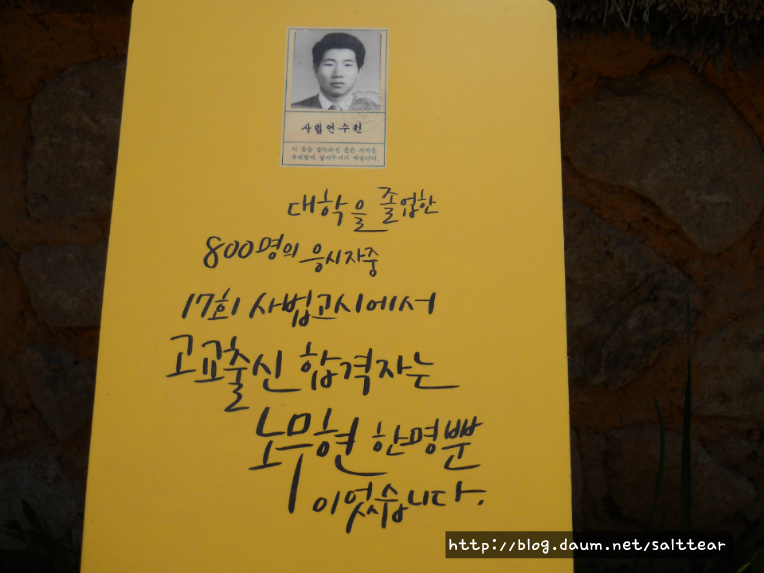 사법연수원
대학을 졸업한
800명의 응시자중
17회 사법고시에서
고교출신 합격자는
노무현 한명뿐
이었습니다.
http://blog.daum.net/salttear